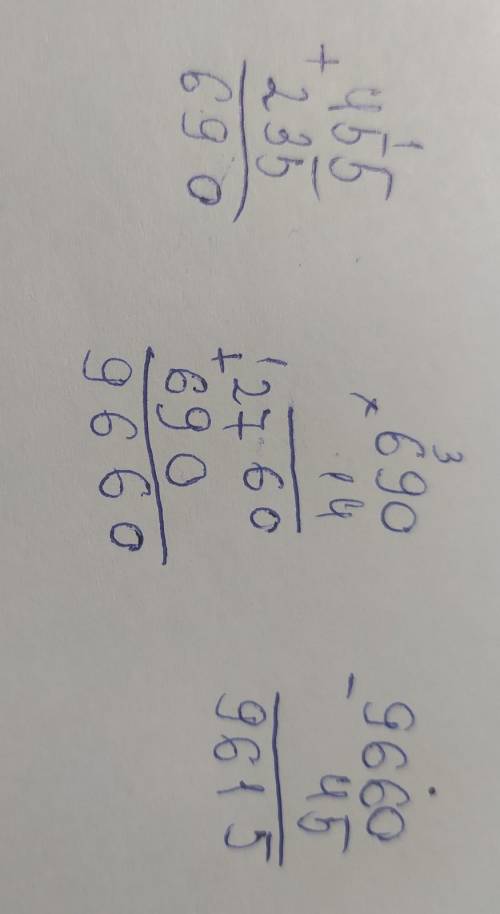 1
+ 455
235
690
3
× 690
14
1
+ 2760
690
9660
- 9660
45
9615